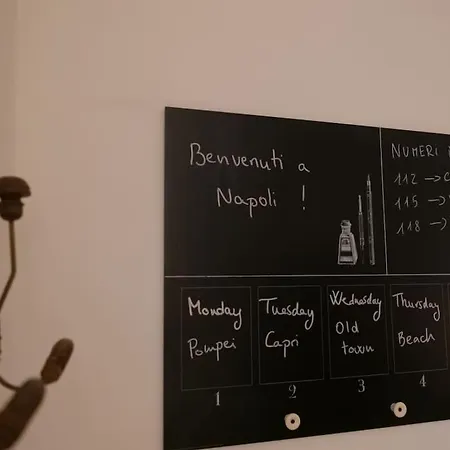 Benvenuti a
Napoli !
NUMERI
112 →
115 →
118 →
Monday
Pompei
1
Tuesday
Capri
2
Wednesday
Old
town
3
Thursday
Beach
4